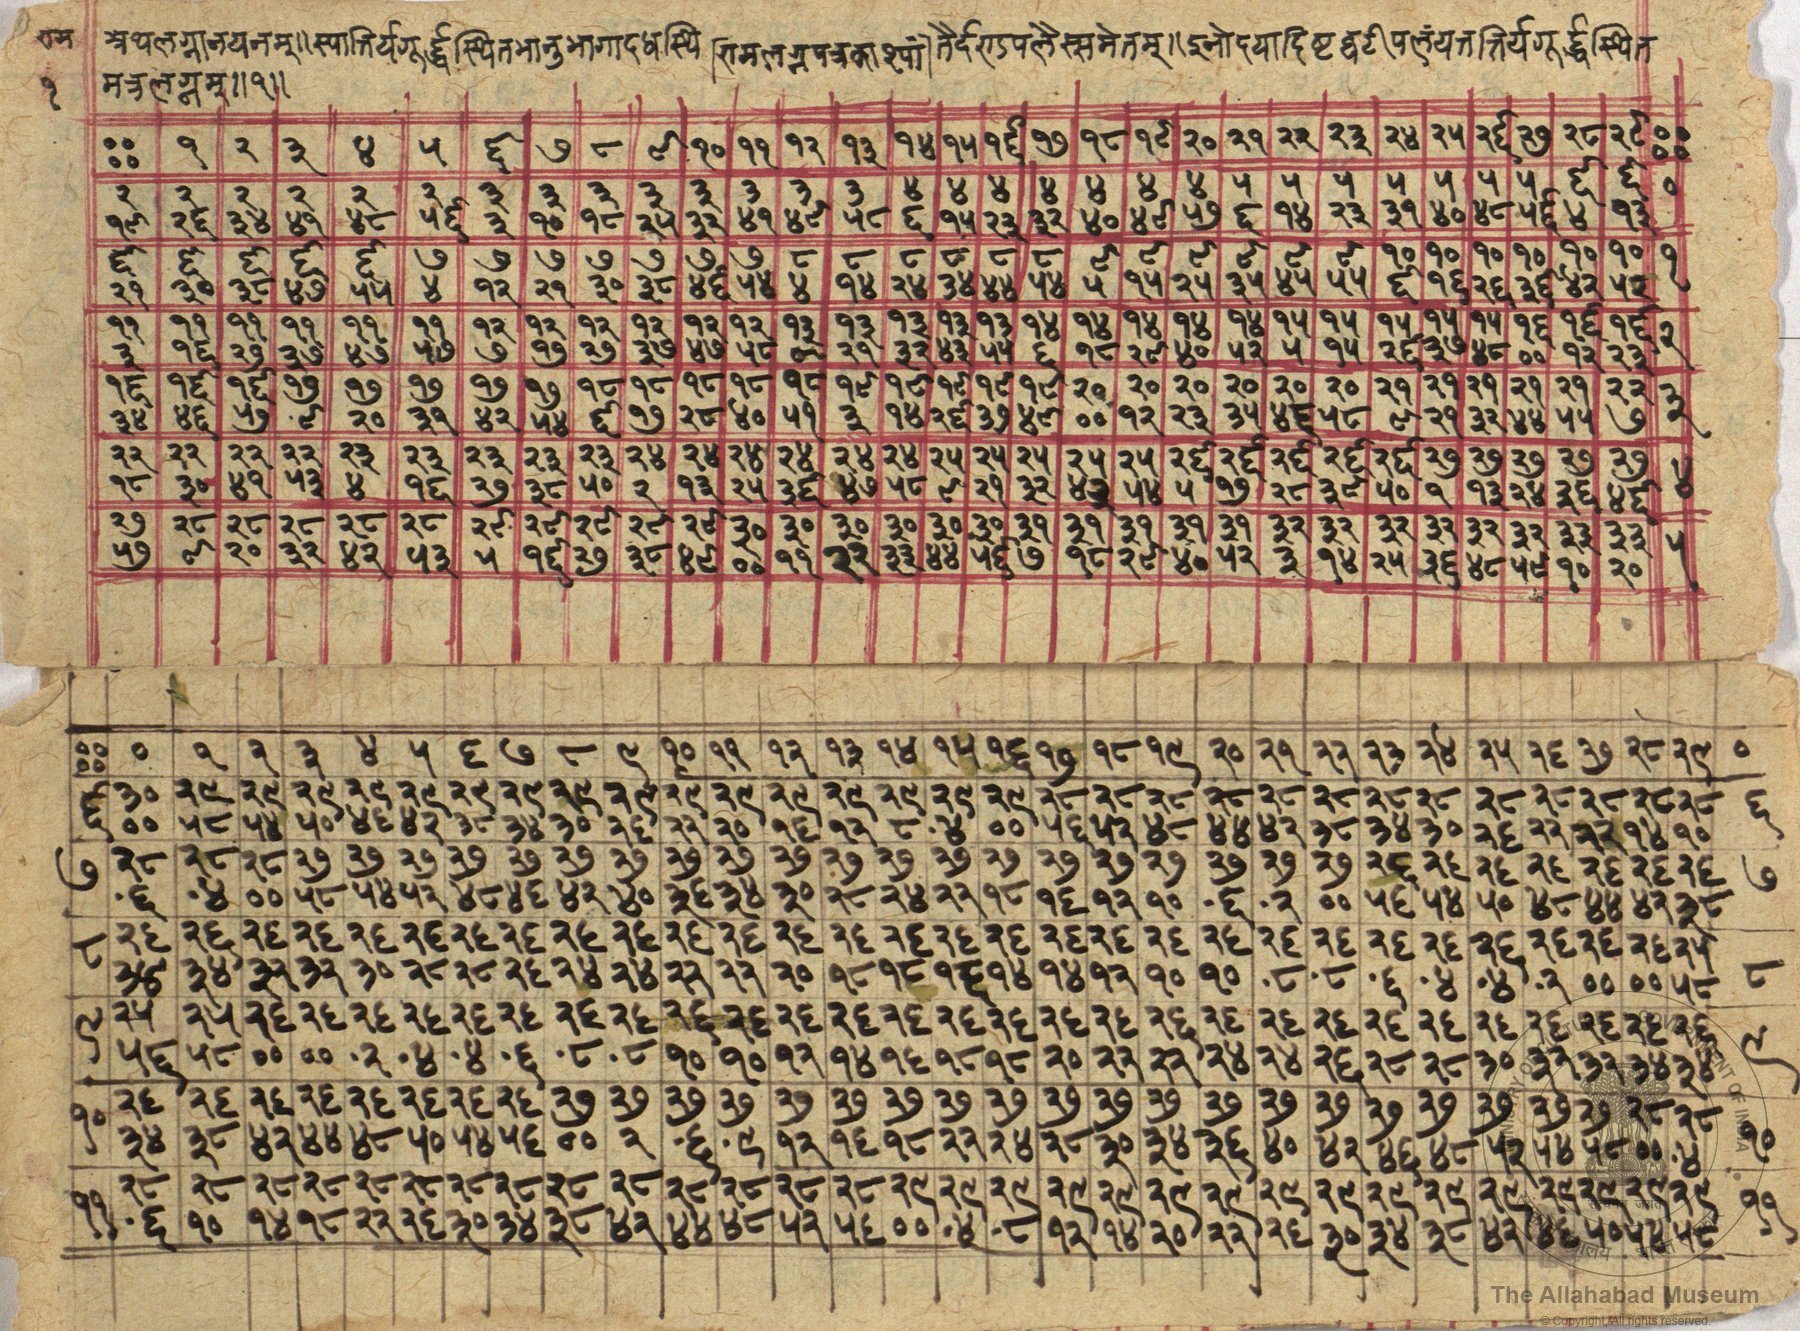 राम अथलग्नानयनम्॥ स्पात्तिर्यगूर्द्ध्वस्थितभानुभागादधस्थि तैर्दण्डपलैस्समेतम्॥ इनोदयादिष्टघटीपलंयत्तत्तिर्यगूर्द्ध्वस्थित
१ मत्रलग्नम्॥१॥
०००० १ २ ३ ४ ५ ६ ७ ८ ९ १० ११ १२ १३ १४ १५ १६ १७ १८ १९ २० २१ २२ २३ २४ २५ २६ २७ २८ २९ ००००
२ २ २ २ २ २ ३ ३ ३ ३ ३ ३ ३ ३ ४ ४ ४ ४ ४ ४ ४ ५ ५ ५ ५ ५ ५ ५ ६ ६ ०
१९ २६ ३४ ४१ ४८ ५६ ३ १० १८ २५ ३३ ४१ ४९ ५८ ६ १५ २३ ३२ ४० ४९ ५७ ६ १४ २३ ३१ ४० ४८ ५६ ४ १३
६ ६ ६ ६ ६ ७ ७ ७ ७ ७ ७ ७ ८ ८ ८ ८ ८ ८ ९ ९ ९ ९ ९ ९ १० १० १० १० १० १० १
२१ ३० ३८ ४७ ५५ ४ १२ २१ ३० ३८ ४६ ५४ ४ १४ २४ ३४ ४४ ५४ ५ १५ २५ ३५ ४५ ५५ ६ १६ २६ ३६ ४२ ५२
११ ११ ११ ११ ११ ११ १२ १२ १२ १२ १२ १२ १३ १३ १३ १३ १३ १४ १४ १४ १४ १४ १५ १५ १५ १५ १५ १६ १६ १६ २
३ १६ २७ ३७ ४७ ५७ ७ १७ २७ ३७ ४७ ५८ ९ २१ ३२ ४३ ५५ ६ १८ २९ ४० ५२ ५ १५ २६ ३७ ४८ ०० १२ २३
१६ १६ १६ १७ १७ १७ १७ १७ १८ १८ १८ १८ १८ १९ १९ १९ १९ १९ २० २० २० २० २० २० २१ २१ २१ २१ २१ २२ ३
३४ ४६ ५७ ९ २० ३१ ४२ ५४ ६ १७ २८ ४० ५१ ३ १४ २६ ३७ ४९ ०० १२ २३ ३५ ४६ ५८ ९ २१ ३२ ४४ ५५ ७
२२ २२ २२ २२ २३ २३ २३ २३ २३ २४ २४ २४ २४ २४ २४ २५ २५ २५ २५ २५ २६ २६ २६ २६ २६ २७ २७ २७ २७ २७ ४
१८ ३० ४१ ५३ ४ १६ २७ ३८ ५० २ १३ २५ ३६ ४७ ५८ ९ २१ ३२ ४३ ५४ ५ १७ २८ ३९ ५० १ १३ २४ ३६ ४६
२७ २८ २८ २८ २८ २८ २९ २९ २९ २९ २९ ३० ३० ३० ३० ३० ३० ३१ ३१ ३१ ३१ ३१ ३२ ३२ ३२ ३२ ३२ ३२ ३३ ३३ ५
५७ ९ २० ३२ ४२ ५३ ५ १६ २७ ३८ ४९ ०० ११ २२ ३३ ४४ ५६ ७ १८ २९ ४० ५२ ३ १४ २५ ३६ ४८ ५९ १० २०
०००० ० १ २ ३ ४ ५ ६ ७ ८ ९ १० ११ १२ १३ १४ १५ १६ १७ १८ १९ २० २१ २२ २३ २४ २५ २६ २७ २८ २९ ०
६ ३० २९ २९ २९ २९ २९ २९ २९ २९ २९ २९ २९ २९ २९ २९ २९ २९ २८ २८ २८ २८ २८ २८ २८ २८ २८ २८ २८ २८ २८ ६
०० ५८ ५४ ५० ४६ ४२ ३८ ३४ ३० २६ २२ २० १६ १२ ८ ४ ०० ५६ ५२ ४८ ४४ ४२ ३८ ३४ ३० २६ २२ २२ १४ १०
७ २८ २८ २८ २७ २७ २७ २७ २७ २७ २७ २७ २७ २७ २७ २७ २७ २७ २७ २७ २७ २७ २७ २७ २६ २६ २६ २६ २६ २६ २६ ७
६ ४ ०० ५८ ५४ ५२ ४८ ४६ ४२ ४० ३६ ३४ ३० २८ २४ २२ १८ १६ १२ १० ६ २ ०० ५६ ५४ ५० ४८ ४४ ४२ ३८
८ २६ २६ २६ २६ २६ २६ २६ २६ २६ २६ २६ २६ २६ २६ २६ २६ २६ २६ २६ २६ २६ २६ २६ २६ २६ २६ २६ २६ २६ २५ ८
३६ ३४ ३२ ३२ ३० २८ २८ २६ २४ २४ २२ २२ २० १८ १८ १६ १४ १४ १२ १० १० ८ ८ ६ ४ ४ २ ०० ०० ५८
९ २५ २५ २६ २६ २६ २६ २६ २६ २६ २६ २६ २६ २६ २६ २६ २६ २६ २६ २६ २६ २६ २६ २६ २६ २६ २६ २६ २६ २६ २६ ९
५६ ५८ ०० ०० २ ४ ४ ६ ८ ८ १० १० १२ १४ १६ १८ १८ २० २२ २२ २४ २४ २६ २८ २८ ३० ३२ ३२ ३४ ३४
१० २६ २६ २६ २६ २६ २६ २६ २६ २७ २७ २७ २७ २७ २७ २७ २७ २७ २७ २७ २७ २७ २७ २७ २७ २७ २७ २७ २७ २८ २८ १०
३४ ३८ ४२ ४४ ४८ ५० ५४ ५६ ०० २ ६ ९ १२ १६ १८ २२ २४ २८ ३० ३४ ३६ ४० ४२ ४६ ४८ ५२ ५४ ५८ ०० ४
११ २८ २८ २८ २८ २८ २८ २८ २८ २८ २८ २८ २८ २८ २८ २९ २९ २९ २९ २९ २९ २९ २९ २९ २९ २९ २९ २९ २९ २९ २९ ११
६ १० १४ १८ २२ २६ ३० ३४ ३८ ४२ ४४ ४८ ५२ ५६ ०० ४ ८ १२ १४ २० २२ २६ ३० ३४ ३८ ४२ ४६ ५० ५४ ५८
The Allahabad Museum
© Copyright. All rights reserved.